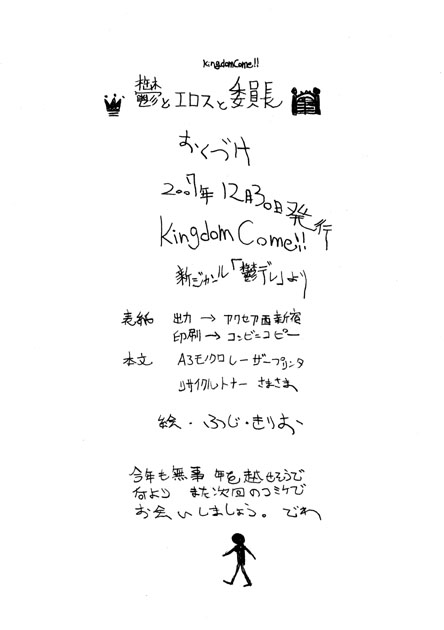 KingdomCome!!
鬱とエロスと委員長
おくづけ
2007年12月30日発行
Kingdom Come!!
新ジャンル「鬱デレ」より
表紙 出力 → アクセア西新宿
印刷 → コンビニコピー
本文 A3モノクロレーザープリンタ
リサイクルトナー さまさま
絵・ふじ・きりお
今年も無事 年を越せそうで
何より また次回のコミケで
お会いしましょう。でわ